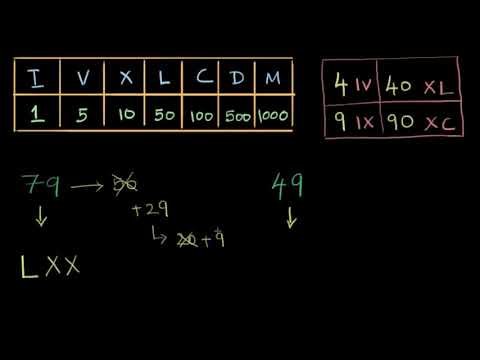 I V X L C D M
1 5 10 50 100 500 1000
4 IV 40 XL
9 IX 90 XC
79 → 50
+29
↳ 20 + 9
↓
LXX
49
↓